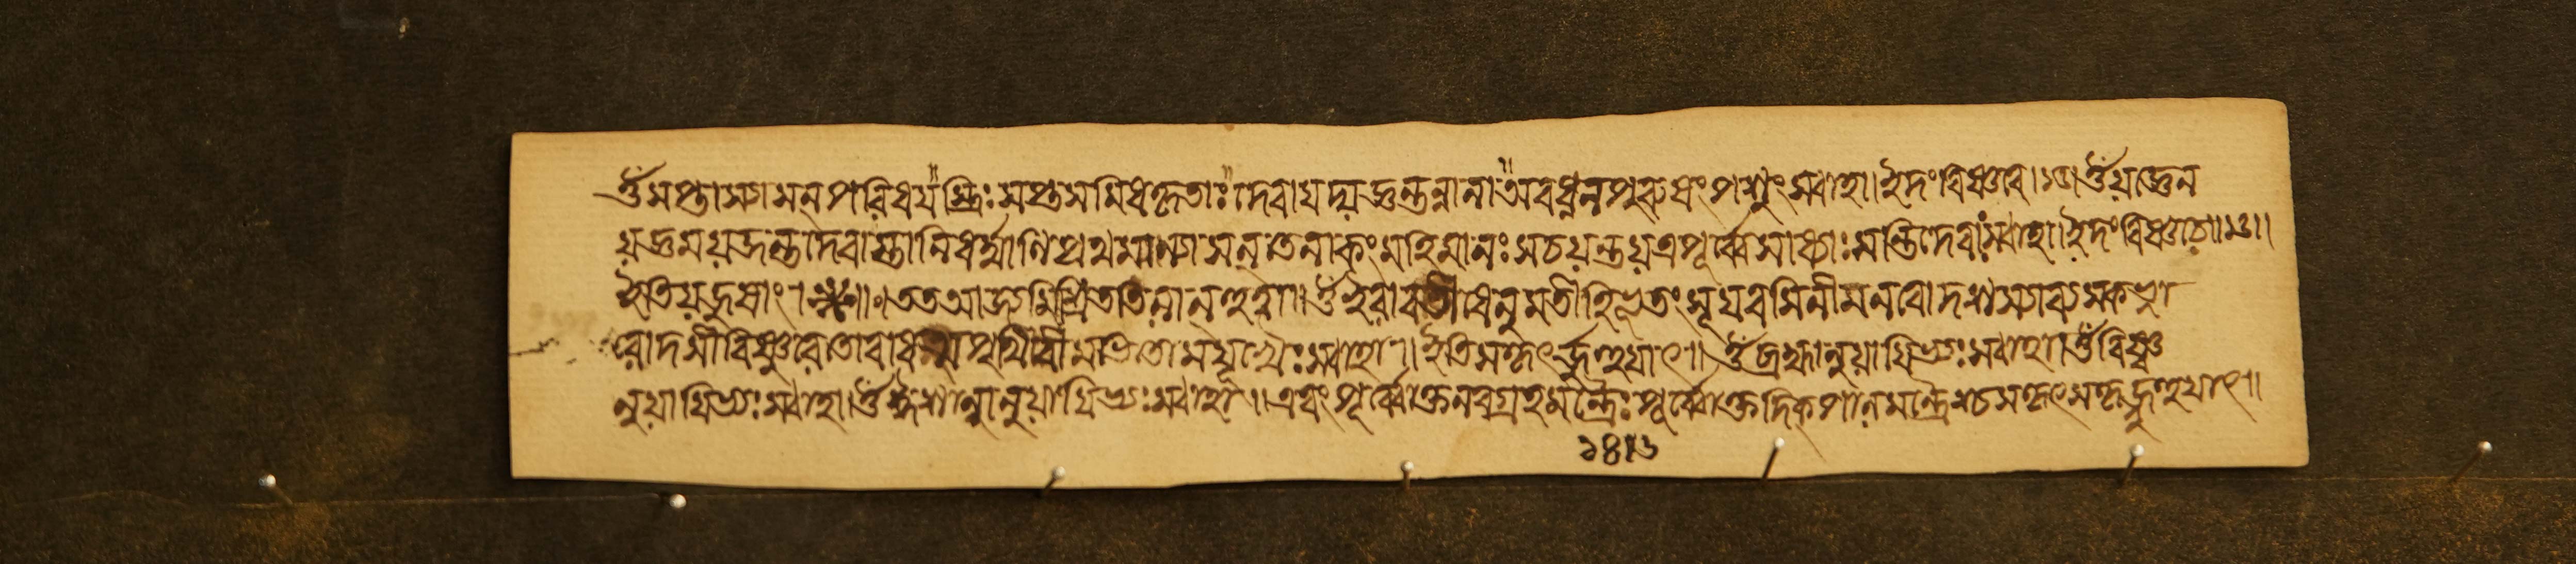 ওঁ সপ্তাস্যাসন্ পরিধয়স্ত্রিঃ সপ্ত সমিধঃ কৃতাঃ দেবা যদ্যজ্ঞন্তন্বানা অবধ্নন্ পুরুষং পশুং স্বাহা। ইদং বিষ্ণবে। ১৫। ওঁ যজ্ঞেন
যজ্ঞময়জন্ত দেবাস্তানি ধর্ম্মাণি প্রথমান্যাসন্ তে নাকং মহিমানঃ সচয়ন্ত যত্র পূর্ব্বে সাধ্যাঃ সন্তি দেবাঃ স্বাহা। ইদং বিষ্ণবে॥১৬॥
ইতি ॥ তত আজ্যমিশ্রিত জুহুয়াৎ॥ ওঁ ইরাবতী ধেনুমতী হি ভূতং সূযবসিনী মনবে দশস্যা ব্যস্কভ্না
রোদসী বিষ্ণুরেতে দাধর্থ পৃথিবীমভিতো ময়ূখৈঃ স্বাহা॥ ইতি সকৃৎ জুহুয়াৎ॥ ওঁ ব্রহ্মানুয়ায়িভ্যঃ স্বাহা। ওঁ বিষ্ণ্ব
নুয়ায়িভ্যঃ স্বাহা। ওঁ ঈশানানুয়ায়িভ্যঃ স্বাহা॥ এবং পূর্ব্বোক্তনবগ্রহমন্ত্রৈঃ পূর্ব্বোক্তদিকপালমন্ত্রৈশ্চ সকৃৎ সকৃজ্জুহুয়াৎ॥